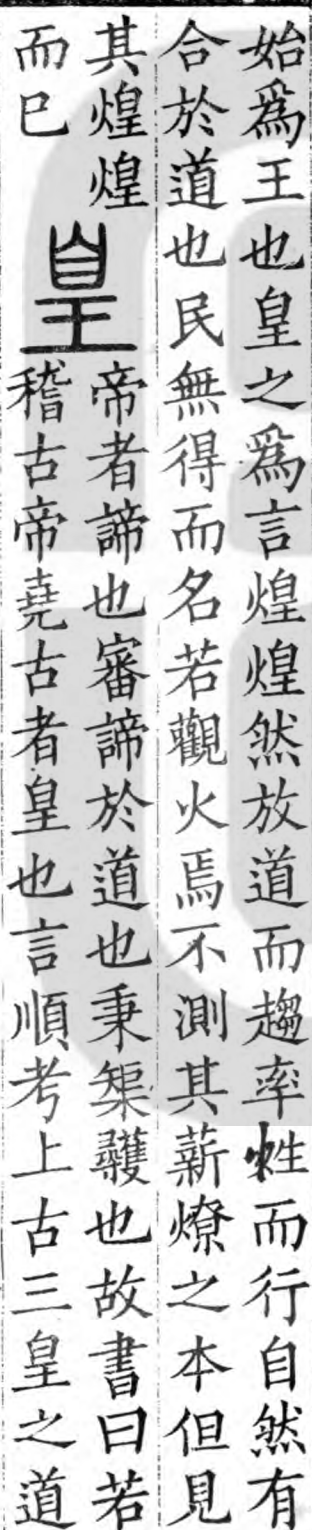 始爲王也皇之爲言煌煌然放道而趨率性而行自然有
合於道也民無得而名若觀火焉不測其薪燎之本但見
其煌煌
而巳
皇
帝者諦也審諦於道也秉榘彠也故書曰若
稽古帝堯古者皇也言順考上古三皇之道